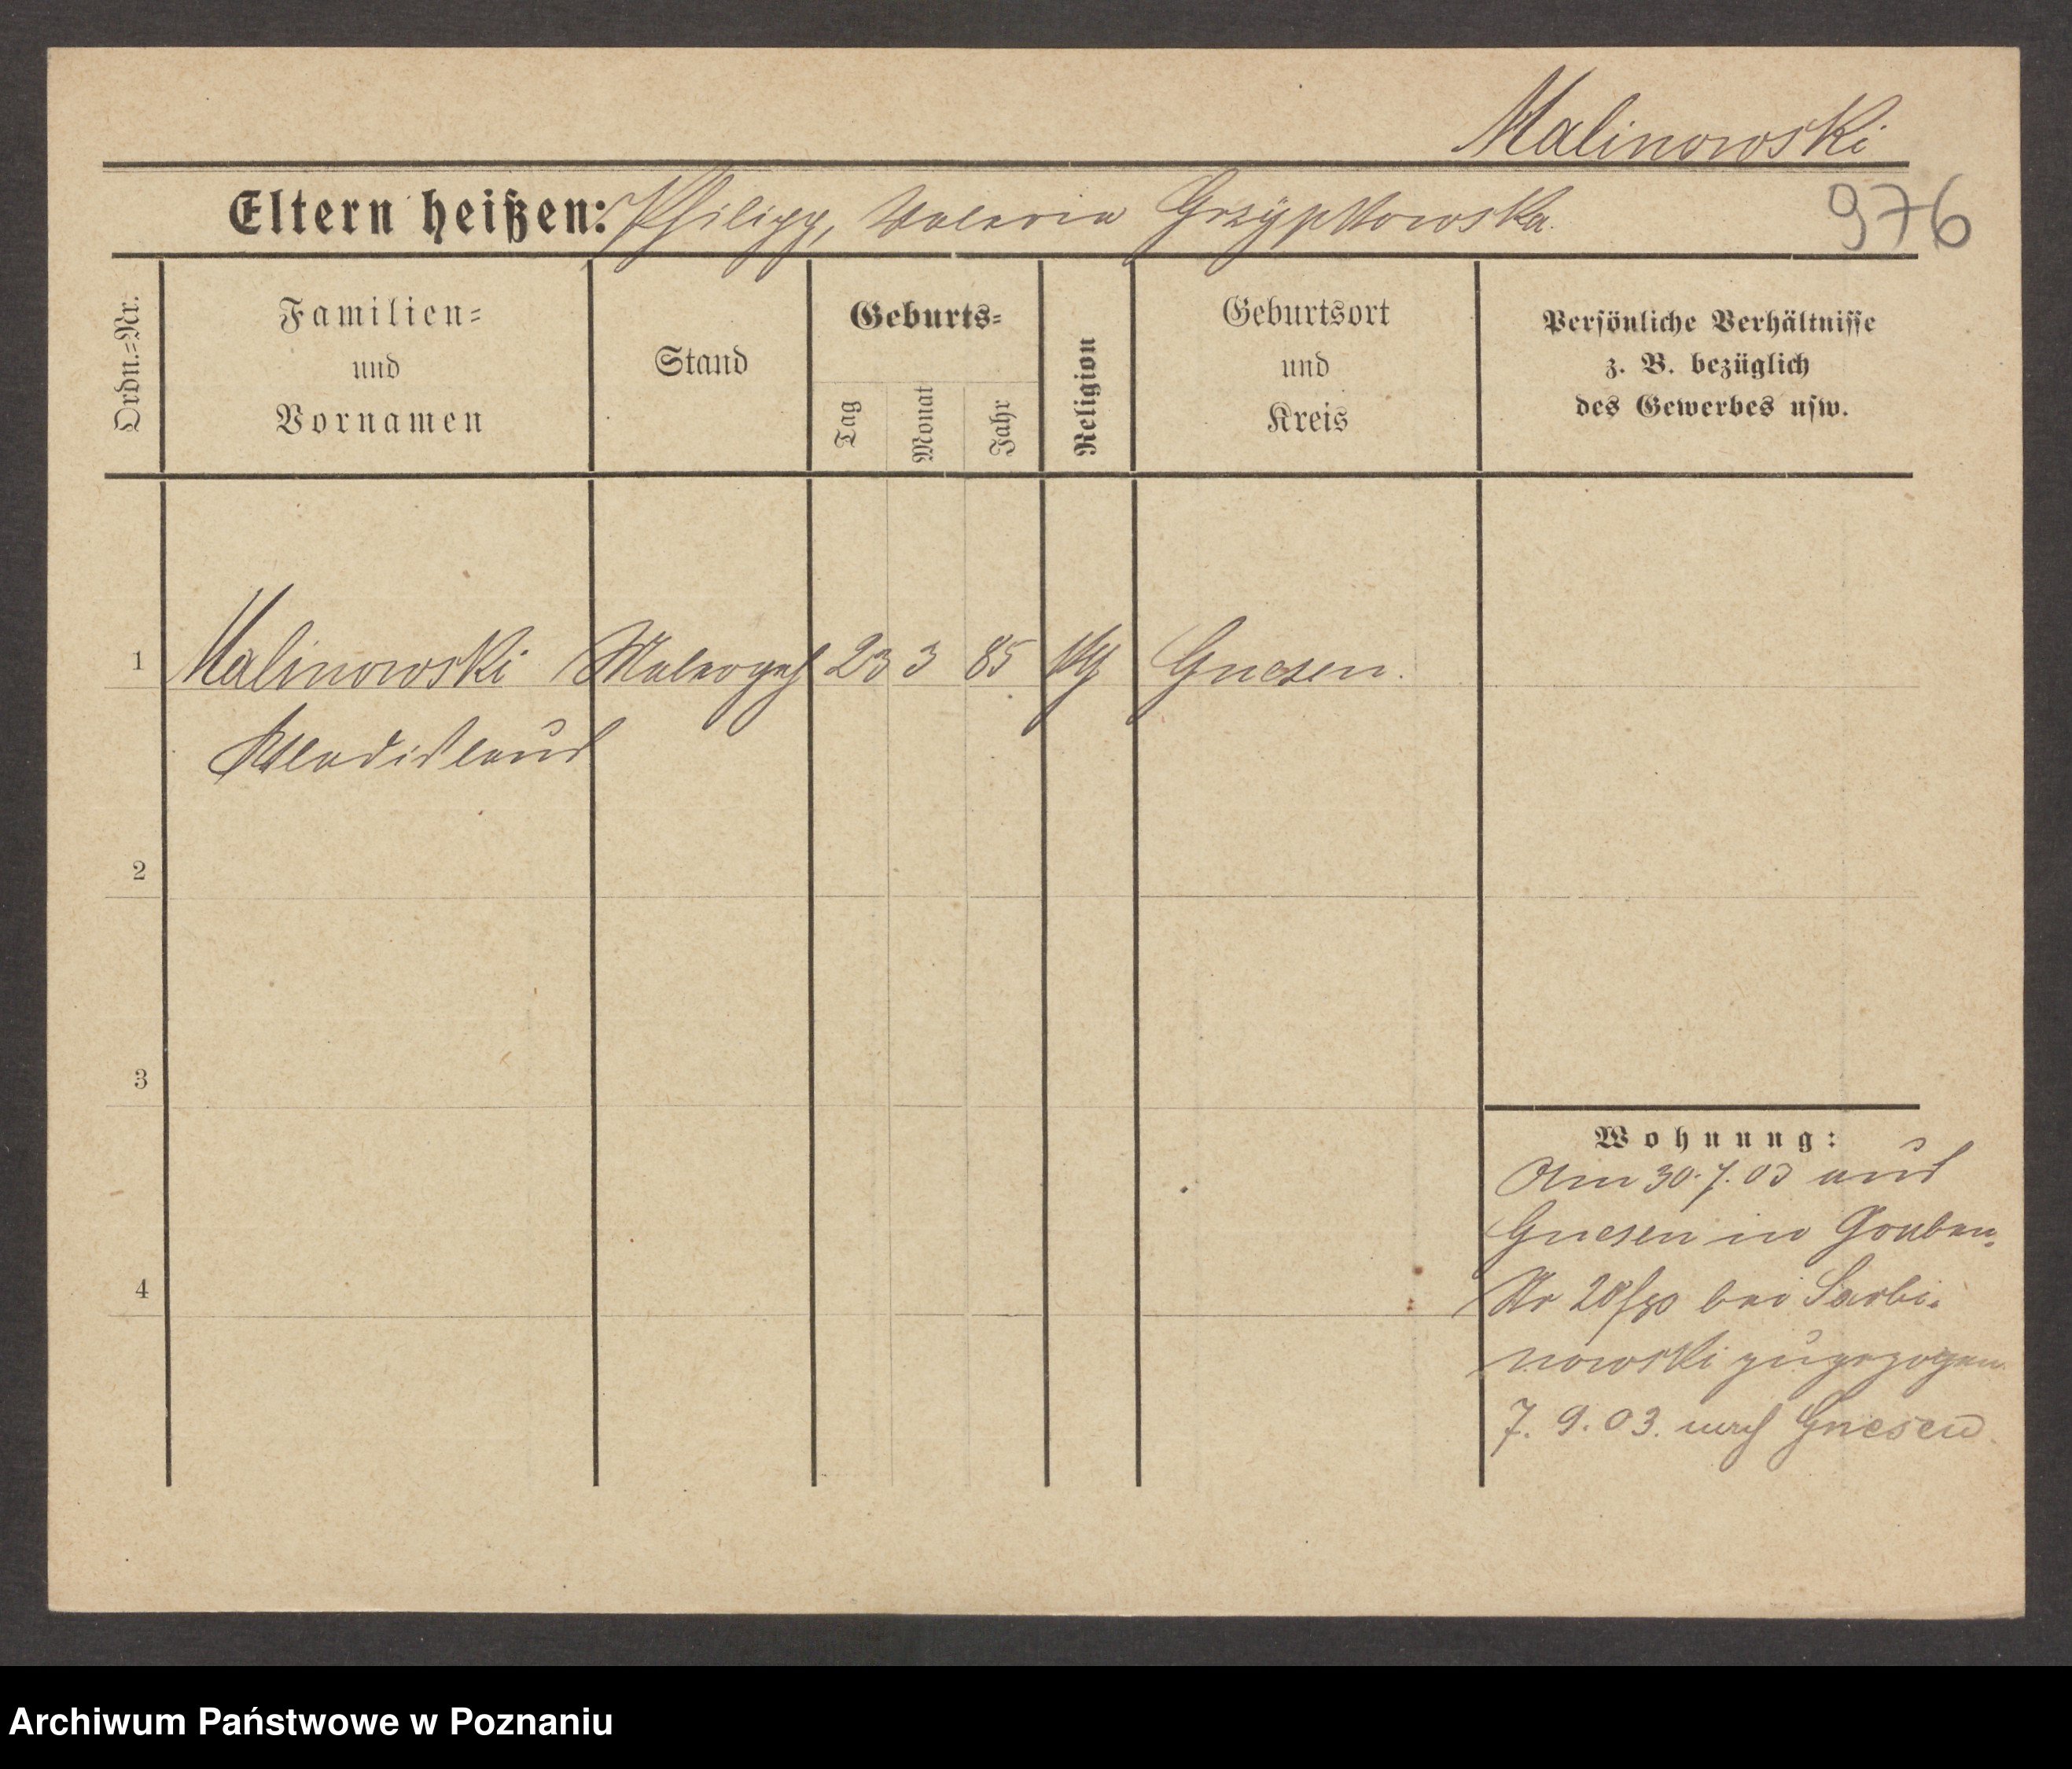 Malinowski
Eltern heißen: Philipp, Valeria Grzÿpkowska.
976
Ordn.-Nr.
Familien-
und
Vornamen
Stand
Geburts-
Tag
Monat
Jahr
Religion
Geburtsort
und
Kreis
Persönliche Verhältnisse
z. B. bezüglich
des Gewerbes usw.
1
Malinowski
Malergeh
23
3
85
Gnesen.
Wladislaus
2
3
4
Wohnung:
Am 30.7.03 aus
Gnesen in
Nr bei Sarbi-
nowski zugezogen
7. 9. 03. nach Gnesen
Archiwum Państwowe w Poznaniu